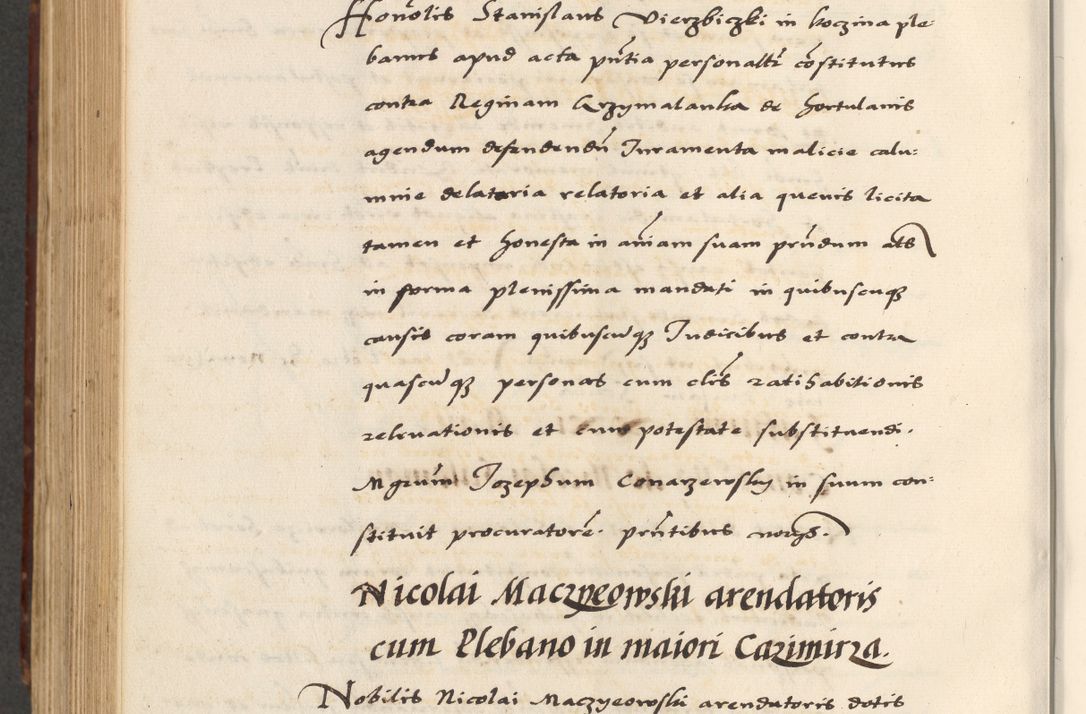 Honōlis Stanislaus Vierzbiczki in koczina ple-
banus apud acta pn̄tia personaltr cōstitutus
contra Reginam Krzymalanka de hortulanis
agendum defendendū Juramenta malicie calu-
mnie delatoria relatoria et alia quevis licita
tamen et honesta in aīam suam prn̄dum als
in forma plenissima mandati in quibuscūq
causis coram quibuscūq Judicibus et contra
quascūq personas cum clīs ratihabitionis
relevationis et cum potestate substituendi.
Mgrum Jozephum Conarzewsky in suum con-
stituit procuratorē. prn̄tibus
Nicolai Maczyeowski arendatoris
cum Plebano in maiori Cazimirza.
Nobilis Nicolai Maczyeowski arendatoris dotis